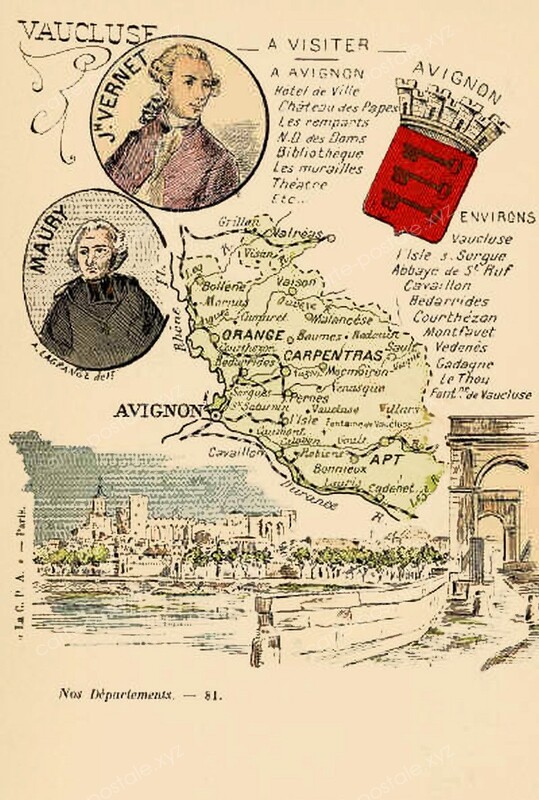 VAUCLUSE
Jh VERNET
A VISITER
A AVIGNON
Hotel de Ville
Château des Papes
Les remparts
N.D. des Doms
Bibliothèque
Les murailles
Théatre
Etc...
AVIGNON
ENVIRONS
Vaucluse
l'Isle s. Sorgue
Abbaye de St Ruf
Cavaillon
Bédarrides
Courthézon
Montfavet
Vedènes
Gadagne
Le Thou
Fontne de Vaucluse
MAURY
A. LAGRANGE delt
Grillon
Valréas
Visan
Fl.
Rhône
Bollène
Vaison
Mornas
Malaucène
ORANGE
Beaumes
Sault
Courthezon
CARPENTRAS
Bedarrides
Mazan
Mormoiron
Venasque
Sorgues
Pernes
St Saturnin
Vaucluse
Villars
AVIGNON
l'Isle
Fontaine de Vaucluse
Cavaillon
Robions
APT
Bonnieux
Lauris
Cadenet
Durance
R.
"La C. P. A." — Paris.
Nos Départements. — 81.